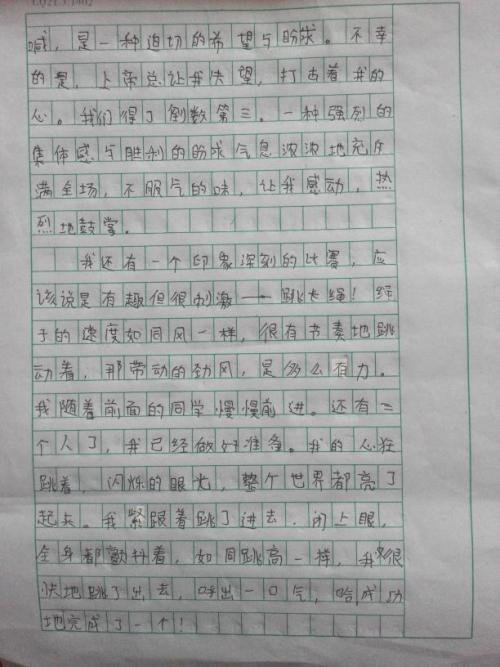 喊，是一种迫切的希望与盼求。不幸
的是，上帝总让我失望，打击着我的
心。我们得了倒数第三。一种强烈的
集体感与胜利的盼求气息浓浓地充斥
满全场，不服气的味，让我感动，热
烈地鼓掌。
我还有一个印象深刻的比赛，应
该说是有趣但很刺激——跳大绳！绳
子的速度如同风一样，很有节奏地跳
动着，那带动的劲风，是多么有力。
我随着前面的同学慢慢前进。还有三
个人了，我已经做好准备。我的心狂
跳着，闪烁的眼光，整个世界都亮了
起来。我紧跟着跳了进去，闭上眼，
全身都颤抖着，如同跳高一样，我很
快地跳了出去，呼出一口气，哈成功
地完成了一个！